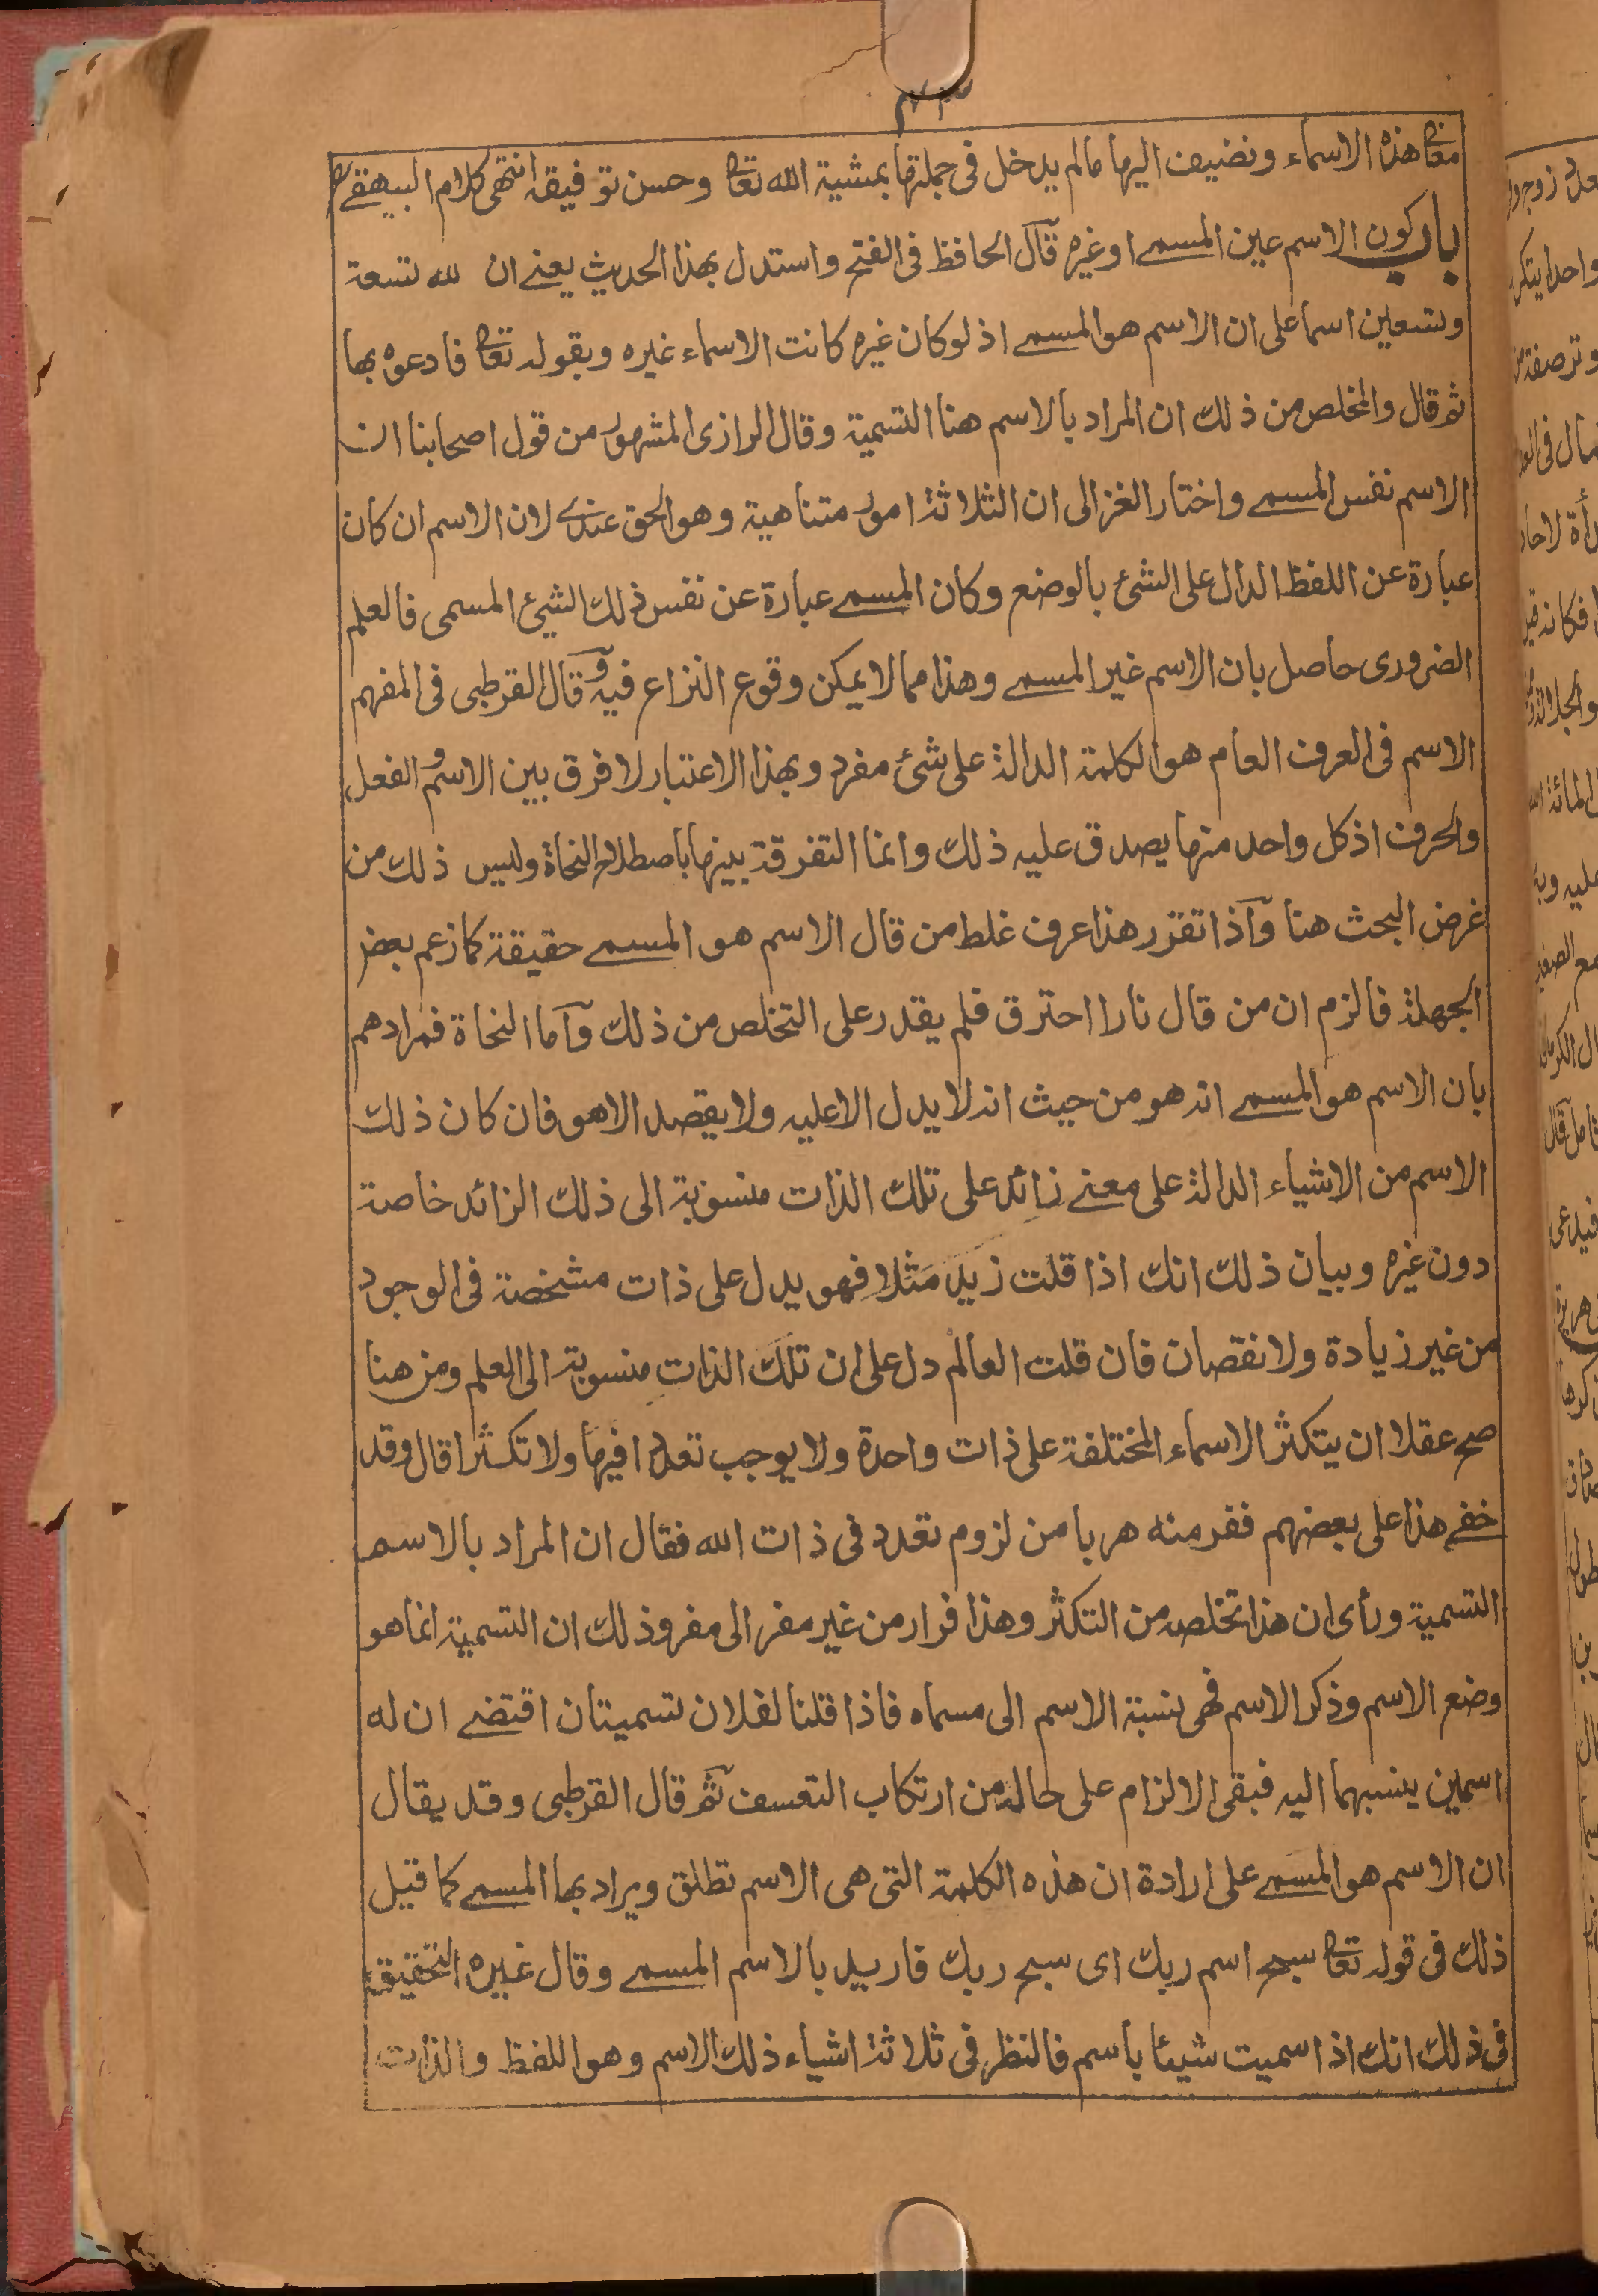 معانى هذه الاسماء ونضيف اليها مالم يدخل فى جملتها بمشية الله تعالى وحسن توفيقه انتهى كلام البيهقے
باب كون الاسم عين المسمے او غيره قال الحافظ فى الفتح واستدل بهذا الحديث يعنے ان لله تسعة
وتسعين اسما على ان الاسم هو المسمے اذ لو كان غيره كانت الاسماء غيره وبقوله تعالى فادعوه بها
ثم قال والمخلص من ذلك ان المراد بالاسم هنا التسمية وقال الرازى المشهور من قول اصحابنا ان
الاسم نفس المسمے واختار الغزالى ان الثلاثة امور متناهية وهو الحق عندے لان الاسم ان كان
عبارة عن اللفظ الدال على الشئ بالوضع وكان المسمے عبارة عن نفس ذلك الشيئ المسمى فالعلم
الضرورى حاصل بان الاسم غير المسمے وهذا مما لا يمكن وقوع النزاع فيه وقال القرطبى فى المفهم
الاسم فى العرف العام هو الكلمة الدالة على شئ مفرد وبهذا الاعتبار لا فرق بين الاسم والفعل
والحرف اذ كل واحد منها يصدق عليه ذلك وانما التفرقة بينها باصطلاح النحاة وليس ذلك من
غرض البحث هنا واذا تقرر هذا عرف غلط من قال الاسم هو المسمے حقيقة كما زعم بعض
الجهلة فالزم ان من قال نارا احترق فلم يقدر على التخلص من ذلك واما النحاة فمرادهم
بان الاسم هو المسمے انه هو من حيث انه لا يدل الا عليه ولا يقصد الا هو فان كان ذلك
الاسم من الاشياء الدالة على معنے زائد على تلك الذات منسوبة الى ذلك الزائد خاصة
دون غيره وبيان ذلك انك اذا قلت زيد مثلا فهو يدل على ذات مشخصة فى الوجود
من غير زيادة ولا نقصان فان قلت العالم دل على ان تلك الذات منسوبة الى العلم ومن هنا
صح عقلا ان يتكثر الاسماء المختلفة على ذات واحدة ولا يوجب تعددا فيها ولا تكثرا قال وقد
خفے هذا على بعضهم ففر منه هربا من لزوم تعدد فى ذات الله فقال ان المراد بالاسم
التسمية ورأى ان هذا تخلص من التكثر وهذا فرار من غير مفر الى مفر وذلك ان التسمية انما هو
وضع الاسم وذكر الاسم فهى نسبة الاسم الى مسماه فاذا قلنا لفلان تسميتان اقتضے ان له
اسمين ينسبهما اليه فبقى الالزام على حاله من ارتكاب التعسف ثم قال القرطبى وقد يقال
ان الاسم هو المسمے على ارادة ان هذه الكلمة التى هى الاسم تطلق ويراد بها المسمے كما قيل
ذلك فى قوله تعالى سبح اسم ربك اى سبح ربك فاريد بالاسم المسمے وقال غيره التحقيق
فى ذلك انك اذا سميت شيئا باسم فالنظر فى ثلاثة اشياء ذلك الاسم وهو اللفظ والذات